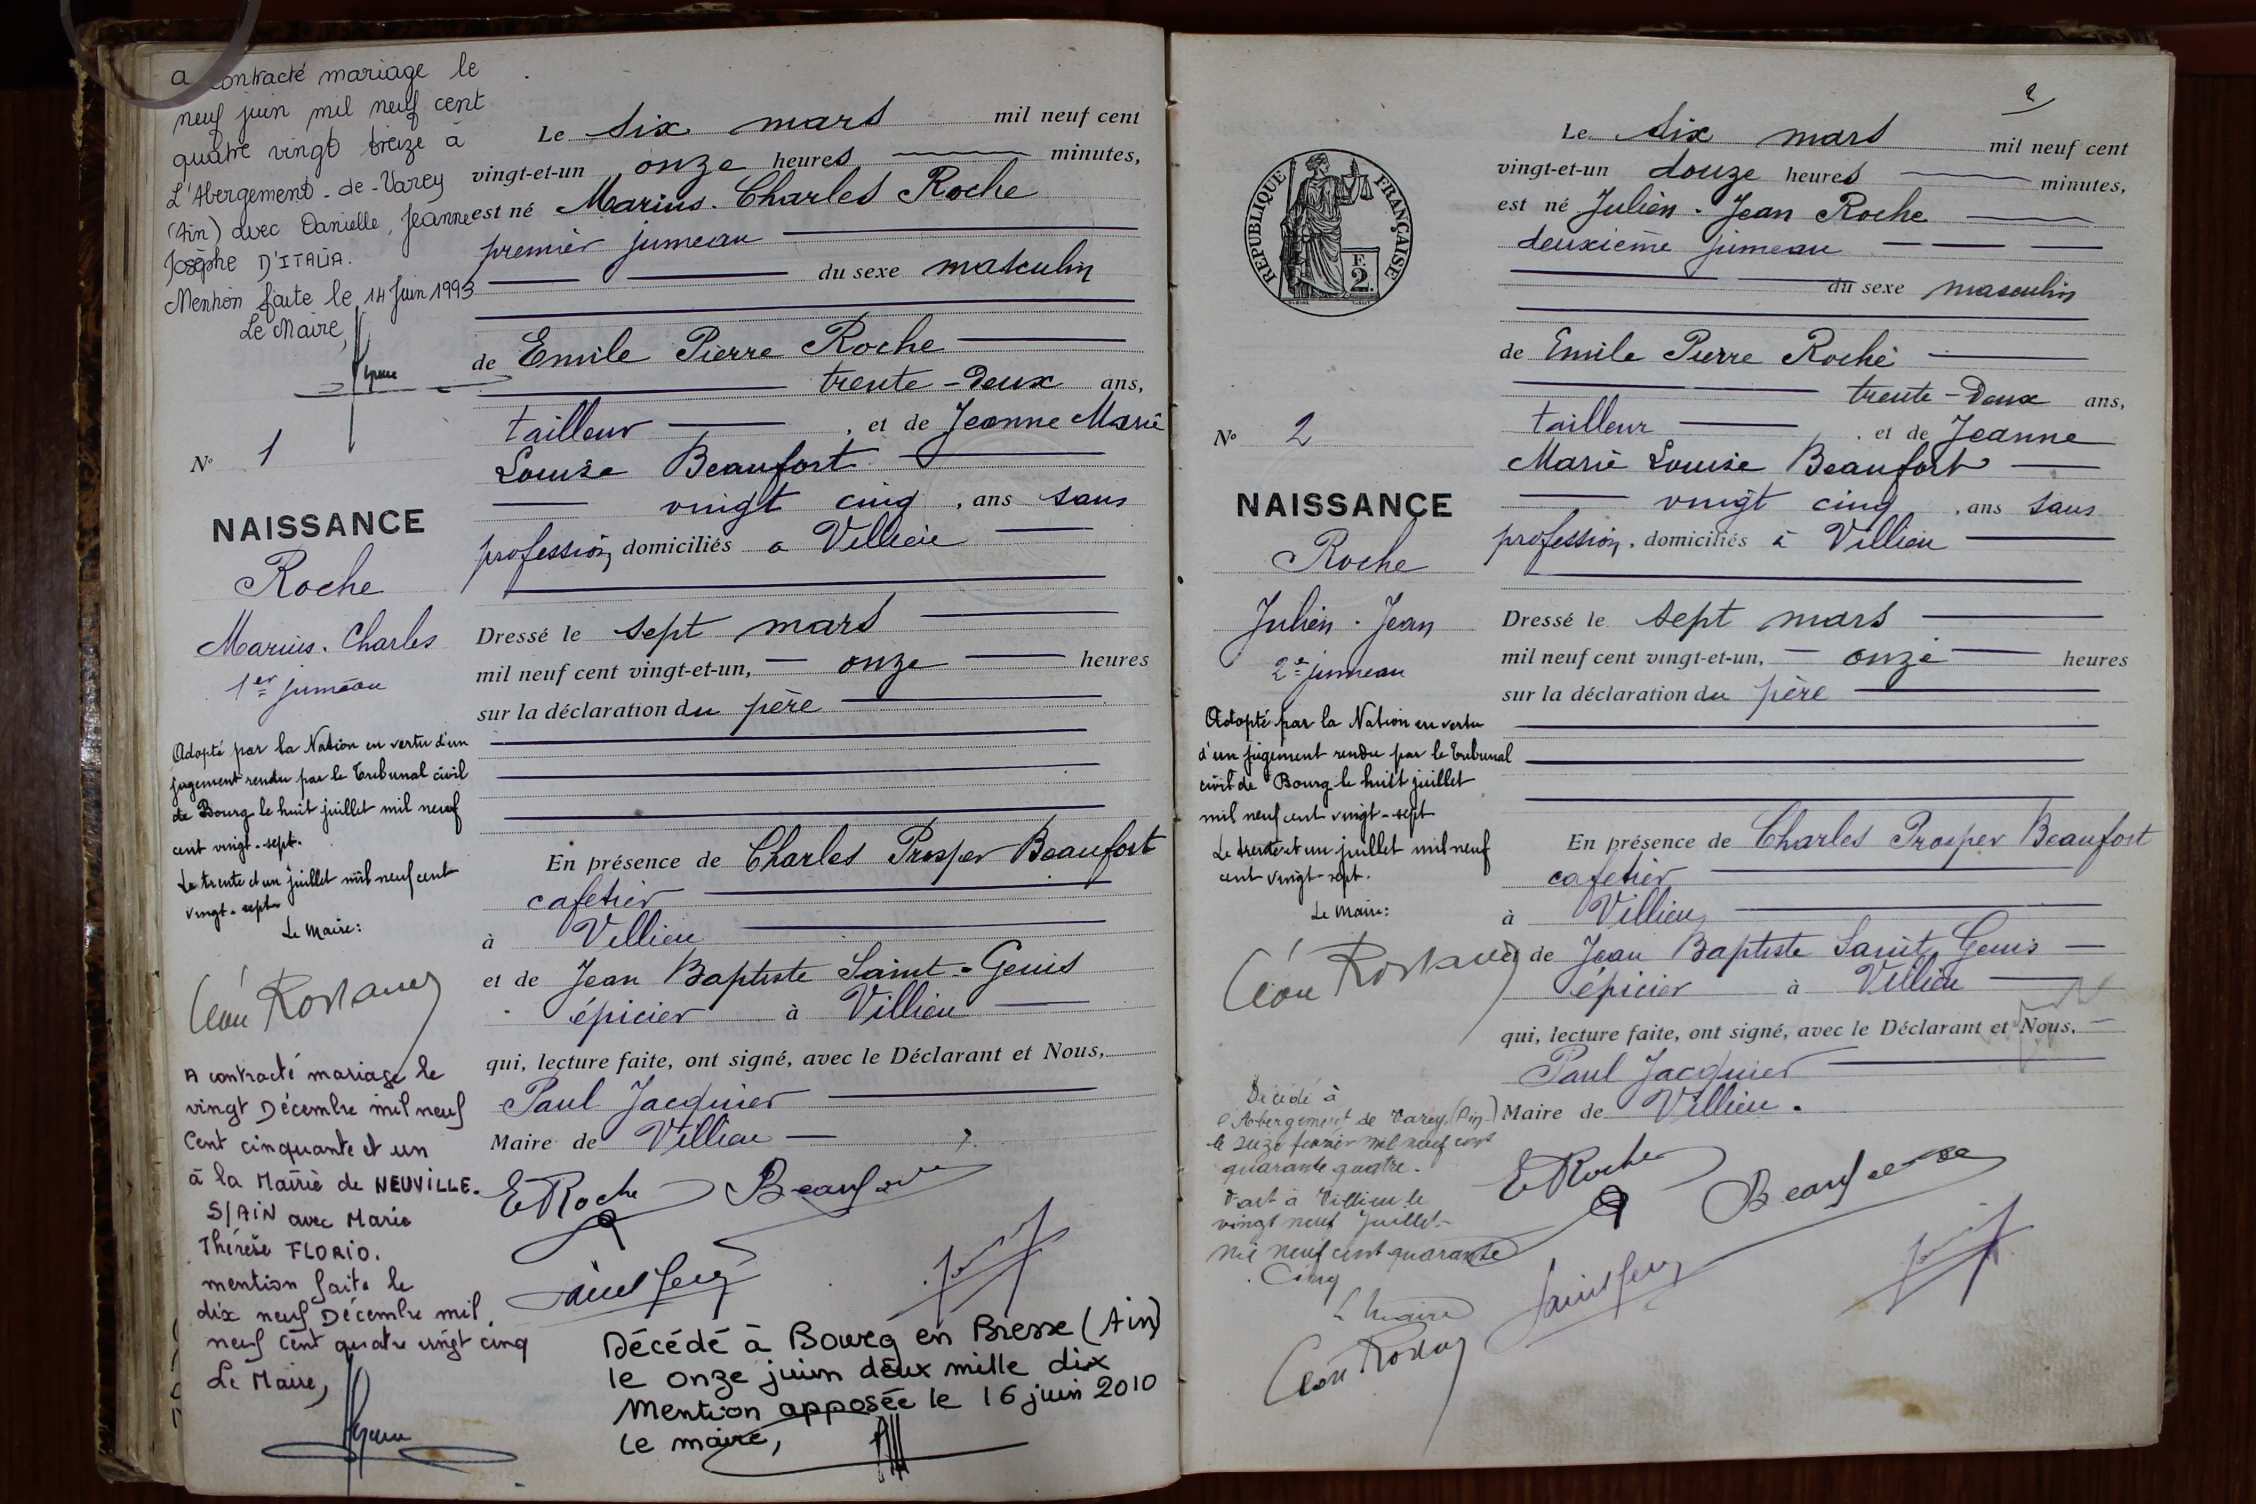 a contracté mariage le
neuf juin mil neuf cent
quatre vingt treize à
L'Abergement-de-Varey
(Ain) avec Danielle, Jeanne
Josèphe D'ITALIA.
Mention faite le 14 Juin 1993
Le Maire,
N° 1
NAISSANCE
Roche
Marius. Charles
1er jumeau
Adopté par la Nation en vertu d'un
jugement rendu par le Tribunal civil
de Bourg le huit juillet mil neuf
cent vingt-sept.
Le trente et un juillet mil neuf cent
vingt-sept
Le Maire:
A contracté mariage le
vingt Décembre mil neuf
Cent cinquante et un
à la Mairie de NEUVILLE.
S/AIN avec Marie
Thérèse FLORIO.
mention faite le
dix neuf Décembre mil
neuf cent quatre vingt cinq
Le Maire,
Le six mars mil neuf cent
vingt-et-un onze heures minutes,
est né Marius. Charles Roche
premier jumeau
du sexe masculin
de Emile Pierre Roche
trente-deux ans,
tailleur , et de Jeanne Marie
Louise Beaufort
vingt cinq , ans sans
profession, domiciliés à Villieu
Dressé le sept mars
mil neuf cent vingt-et-un, onze heures
sur la déclaration du père
En présence de Charles Prosper Beaufort
cafetier
à Villieu
et de Jean Baptiste Saint-Genis
épicier à Villieu
qui, lecture faite, ont signé, avec le Déclarant et Nous,
Paul Jacquier
Maire de Villieu
E Roche Beaufort
Décédé à Bourg en Bresse (Ain)
le onze juin deux mille dix
Mention apposée le 16 juin 2010
Le maire,
2
RÉPUBLIQUE FRANÇAISE
F.
2.
N° 2
NAISSANCE
Roche
Julien. Jean
2e jumeau
Adopté par la Nation en vertu
d'un jugement rendu par le Tribunal
civil de Bourg le huit juillet
mil neuf cent vingt-sept
Le trente et un juillet mil neuf
cent vingt-sept.
Le Maire:
Décédé à
l'Abergement de Varey (Ain)
le février mil neuf cent
quarante quatre.
Fait à Villieu le
vingt neuf Juillet
mil neuf cent quarante
Cinq
Le Maire
Le six mars mil neuf cent
vingt-et-un douze heures minutes,
est né Julien. Jean Roche
deuxième jumeau
du sexe masculin
de Emile Pierre Roche
trente-deux ans,
tailleur , et de Jeanne
Marie Louise Beaufort
vingt cinq , ans sans
profession, domiciliés à Villieu
Dressé le sept mars
mil neuf cent vingt-et-un, onze heures
sur la déclaration du père
En présence de Charles Prosper Beaufort
cafetier
à Villieu
et de Jean Baptiste Saint Genis
épicier à Villieu
qui, lecture faite, ont signé, avec le Déclarant et Nous,
Paul Jacquier
Maire de Villieu.
E Roche Beaufort